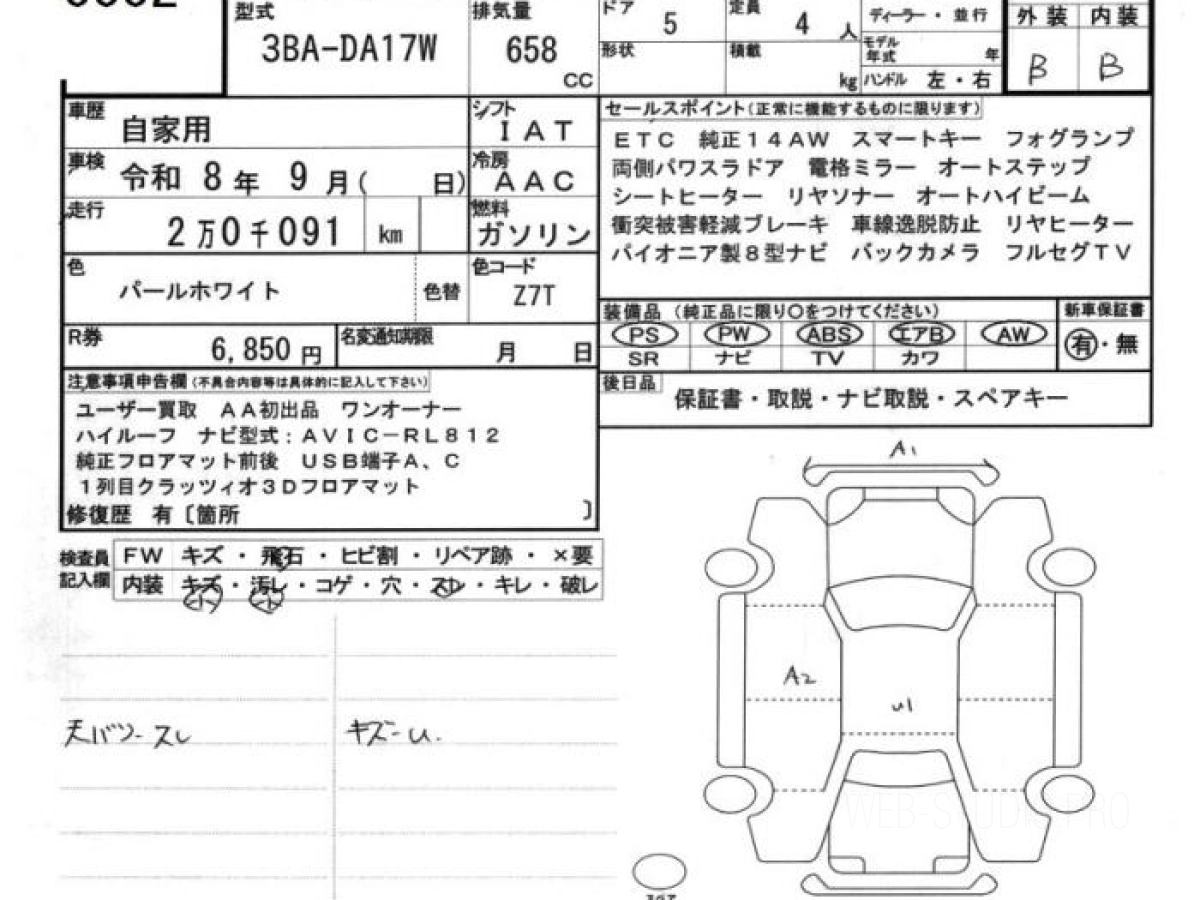 型式 3BA-DA17W
排気量 658 CC
ドア 5
定員 4 人
形状
積載 kg
ディーラー・並行
モデル年式 年
ハンドル 左・右
外装 内装
B B
車歴 自家用
シフト IAT
車検 令和 8年 9月( 日)
冷房 AAC
走行 2万0千091 km
燃料 ガソリン
色 パールホワイト 色替
色コード Z7T
R券 6,850円
名変通知期限 月 日
セールスポイント(正常に機能するものに限ります)
ETC 純正14AW スマートキー フォグランプ
両側パワスラドア 電格ミラー オートステップ
シートヒーター リヤソナー オートハイビーム
衝突被害軽減ブレーキ 車線逸脱防止 リヤヒーター
パイオニア製8型ナビ バックカメラ フルセグTV
装備品(純正品に限り○をつけてください)
新車保証書
PS PW ABS エアB AW
有・無
SR ナビ TV カワ
後日品 保証書・取説・ナビ取説・スペアキー
注意事項申告欄(不具合内容等は具体的に記入して下さい)
ユーザー買取 AA初出品 ワンオーナー
ハイルーフ ナビ型式:AVIC-RL812
純正フロアマット前後 USB端子A、C
1列目クラッツィオ3Dフロアマット
修復歴 有〔箇所 〕
検査員記入欄
FW キズ・飛石・ヒビ割・リペア跡・×要
内装 キズ・汚レ・コゲ・穴・スレ・キレ・破レ
小 小
天バリースレ
キズーU.
A1
A2
U1
WEB-STUDIO.PRO